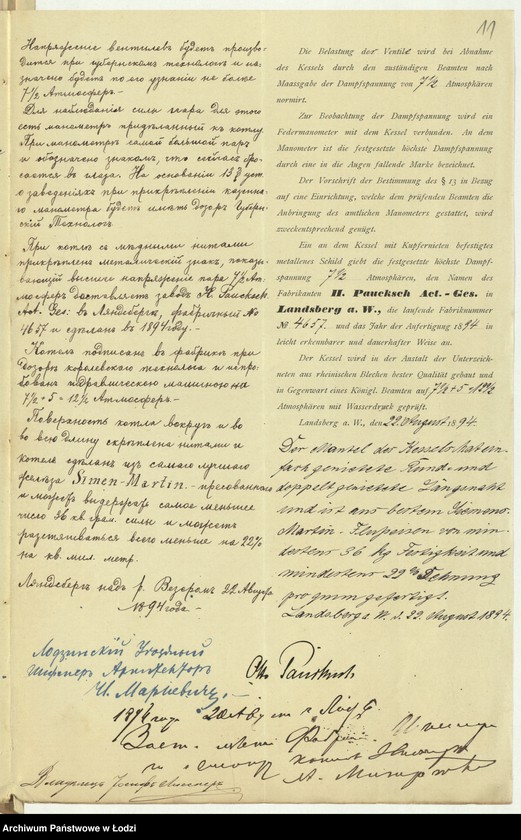 11
Напряженіе вентилевъ будетъ произво-
дится при губернскомъ технологѣ и на-
значено будетъ по его узнанію не болѣе
7 1/2 Атмосферъ –
Для наблюденія силы пара для этого
есть манометръ придѣланный къ котлу.
При манометрѣ самой большой паръ
и обозначено знакомъ, что сейчасъ бро-
сается въ глаза. На основаніи 13 § уст.
о заведеніяхъ при прикрѣпленіи казенна-
го манометра будетъ имѣть дозоръ Губерн-
скій Технологъ
При котлѣ съ мѣдными нитами
прикрѣпленъ металическій знакъ, показы-
вающій высшее напряженіе пара 7 1/2 Ат-
мосферъ доставляетъ заводъ H. Paucksch
Act. Ges. въ Ляндсбергѣ, фабричный No
4657 и сдѣлано въ 1894 году. –
Котелъ подписанъ въ фабрикѣ при
дозорѣ королевскаго технолога и испро-
бованъ гидравлическою машиною на
7 1/2 + 5 = 12 1/2 Атмосферъ –
Поверхность котла вокругъ и во
всю длину скрѣплена нитами и
котелъ сдѣланъ изъ самаго лучшаго
Simen-Martin. – пресованнаго
и можетъ выдержать самое меньшее
число 36 кв. силы и можетъ
растягиваться всего меньше на 22%
на кв. мил. метр.
Ляндсбергъ надъ р. 22 Августа
1894 года –
Die Belastung der Ventile wird bei Abnahme
des Kessels durch den zuständigen Beamten nach
Maassgabe der Dampfspannung von 7 1/2 Atmosphären
normirt.
Zur Beobachtung der Dampfspannung wird ein
Federmanometer mit dem Kessel verbunden. An dem
Manometer ist die festgesetzte höchste Dampfspannung
durch eine in die Augen fallende Marke bezeichnet.
Der Vorschrift der Bestimmung des § 13 in Bezug
auf eine Einrichtung, welche dem prüfenden Beamten die
Anbringung des amtlichen Manometers gestattet, wird
zweckentsprechend genügt.
Ein an dem Kessel mit Kupfernieten befestigtes
metallenes Schild giebt die festgesetzte höchste Dampf-
spannung 7 1/2 Atmosphären, den Namen des
Fabrikanten H. Paucksch Act.-Ges. in
Landsberg a. W., die laufende Fabriknummer
№ 4657. und das Jahr der Anfertigung 1894 in
leicht erkennbarer und dauerhafter Weise an.
Der Kessel wird in der Anstalt der Unterzeich-
neten aus rheinischen Blechen bester Qualität gebaut und
in Gegenwart eines Königl. Beamten auf 7 1/2 + 5 = 12 1/2
Atmosphären mit Wasserdruck geprüft.
Landsberg a. W., den 22. August 1894.
Der Mantel des Kessels hat ein-
fach genietete Rund- und
doppelt genietete Längsnaht
und ist aus bestem Siemens-
Martin-Flusseisen von min-
destens 36 Kg Festigkeit und
mindestens 22 % Dehnung
pro qmm gefertigt.
Landsberg a. W. d. 22. August 1894.
Лодзинскій Уѣздный
Инженеръ Архитекторъ
И. Маркевичъ. –
Otto Paucksch
1896 года 20 г. Лодзь
Владѣлецъ Іосифъ
Archiwum Państwowe w Łodzi